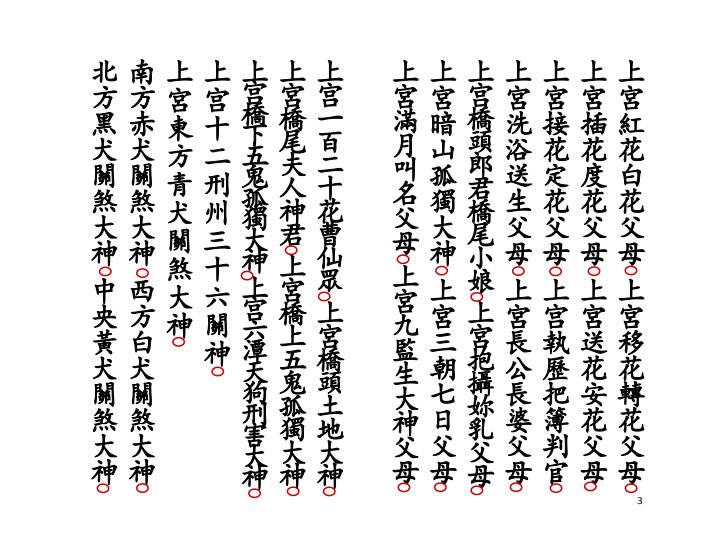 上宮紅花白花父母○上宮移花轉花父母○
上宮插花度花父母○上宮送花安花父母○
上宮接花定花父母○上宮執歷把簿判官○
上宮洗浴送生父母○上宮長公長婆父母○
上宮橋頭郎君橋尾小娘○上宮抱攝妳乳父母○
上宮暗山孤獨大神○上宮三朝七日父母○
上宮滿月叫名父母○上宮九監生大神父母○
上宮一百二十花曹仙眾○上宮橋頭土地大神○
上宮橋尾夫人神君○上宮橋上五鬼孤獨大神○
上宮橋下五鬼孤獨大神○上宮六潭天狗刑害大神○
上宮十二刑州三十六關神○
上宮東方青犬關煞大神○
南方赤犬關煞大神○西方白犬關煞大神○
北方黑犬關煞大神○中央黃犬關煞大神○
3